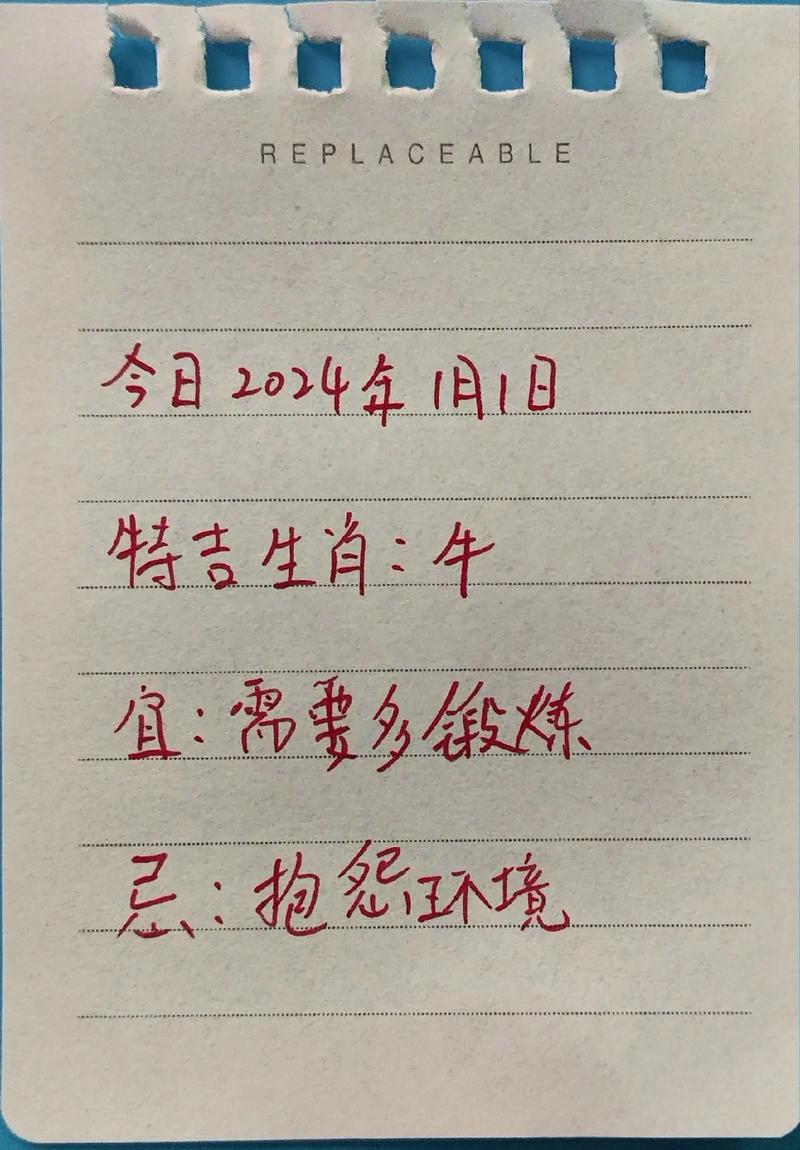 REPLACEABLE
今日2024年1月1日
特吉生肖：牛
宜：需要多锻炼
忌：抱怨环境